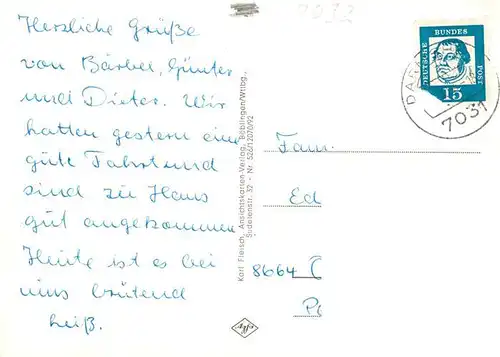 Herzliche Grüße
von Bärbel, Günter
und Dieter. Wir
hatten gestern eine
gute Fahrt und
sind zu Haus
gut angekommen
Heute ist es bei
uns brütend
heiß.
Karl Fleisch, Ansichtskarten-Verlag, Böblingen/Wttbg.,
Sudetenstr. 32 - Nr 522/12070/92
DEUTSCHE
BUNDES
POST
15
DA
7031
Fam.
Ed
8664